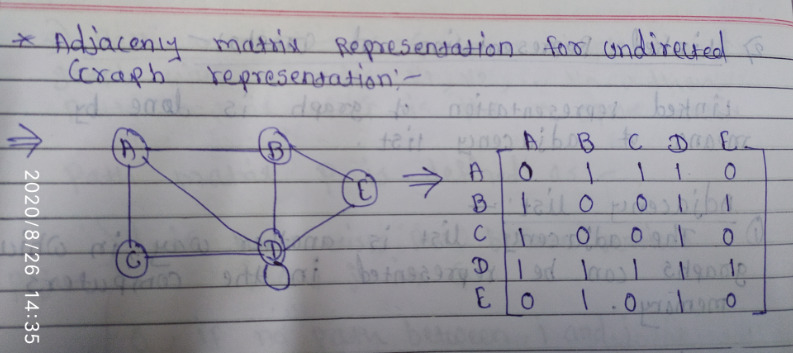 * Adjacenly matrix Representation for undirected
Graph representation:-
⇒ A B C D E ⇒
A B C D E
A 0 1 1 1 0
B 1 0 0 1 1
C 1 0 0 1 0
D 1 1 1 1 1
E 0 1 0 1 0
2020/8/26 14:35